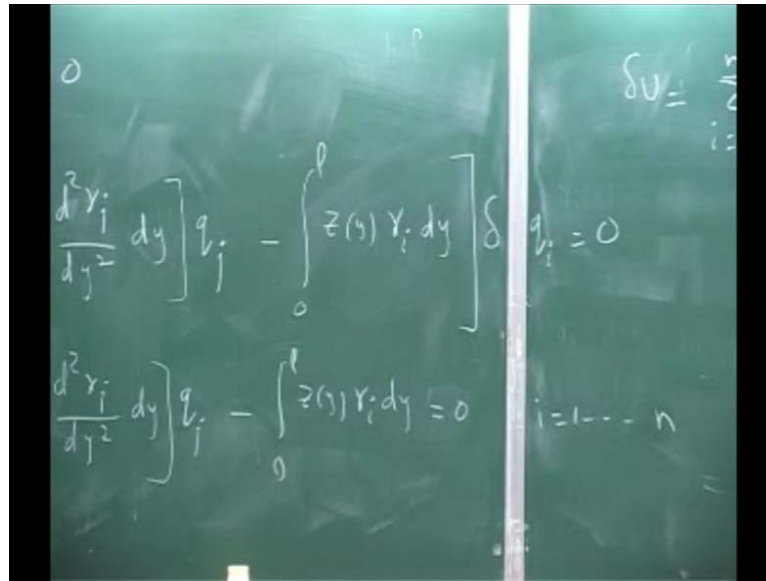 0
δU =
i =
d²γj/dy² dy] qj − ∫₀ˡ Z(y) γi dy] δ qi = 0
d²γj/dy² dy] qj − ∫₀ˡ Z(y) γi dy = 0 i = 1 --- n